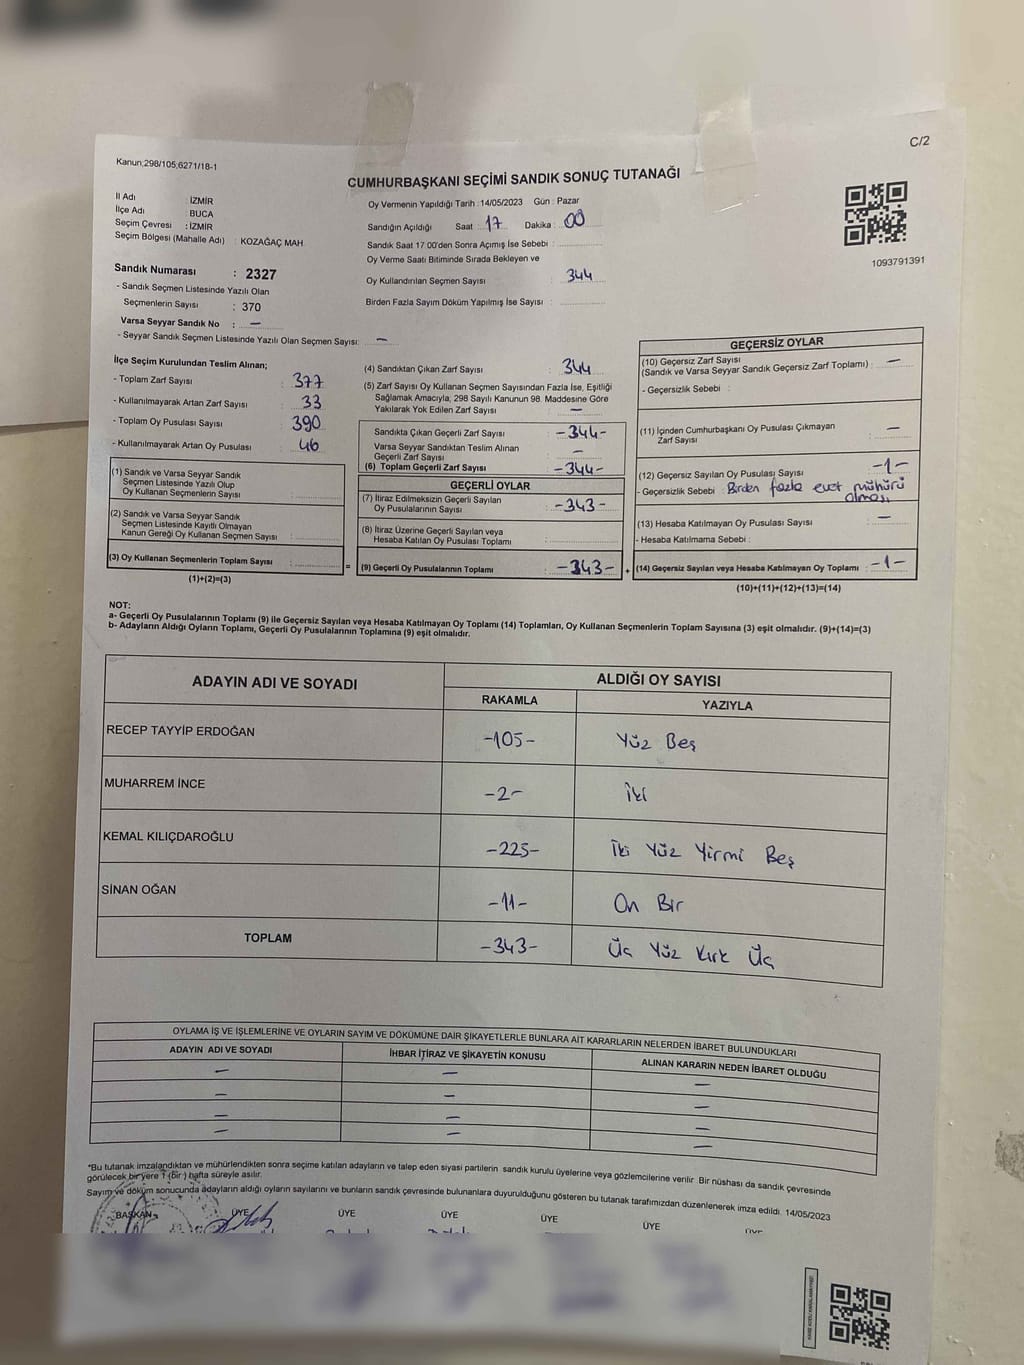 C/2
Kanun,298/105,6271/18-1
CUMHURBAŞKANI SEÇİMİ SANDIK SONUÇ TUTANAĞI
İl Adı : İZMİR
İlçe Adı : BUCA
Seçim Çevresi : İZMİR
Seçim Bölgesi (Mahalle Adı) : KOZAĞAÇ MAH.
Oy Vermenin Yapıldığı Tarih :14/05/2023 Gün : Pazar
Sandığın Açıldığı Saat : 17 Dakika : 00
Sandık Saat 17.00'den Sonra Açımış İse Sebebi :
Oy Verme Saati Bitiminde Sırada Bekleyen ve
Oy Kullandırılan Seçmen Sayısı : 344
Birden Fazla Sayım Döküm Yapılmış İse Sayısı :
1093791391
Sandık Numarası : 2327
- Sandık Seçmen Listesinde Yazılı Olan
Seçmenlerin Sayısı : 370
Varsa Seyyar Sandık No : –
- Seyyar Sandık Seçmen Listesinde Yazılı Olan Seçmen Sayısı: –
İlçe Seçim Kurulundan Teslim Alınan;
- Toplam Zarf Sayısı : 377
- Kullanılmayarak Artan Zarf Sayısı : 33
- Toplam Oy Pusulası Sayısı : 390
- Kullanılmayarak Artan Oy Pusulası : 46
(1) Sandık ve Varsa Seyyar Sandık
Seçmen Listesinde Yazılı Olup
Oy Kullanan Seçmenlerin Sayısı :
(2) Sandık ve Varsa Seyyar Sandık
Seçmen Listesinde Kayıtlı Olmayan
Kanun Gereği Oy Kullanan Seçmen Sayısı :
(3) Oy Kullanan Seçmenlerin Toplam Sayısı :
(1)+(2)=(3)
(4) Sandıktan Çıkan Zarf Sayısı : 344
(5) Zarf Sayısı Oy Kullanan Seçmen Sayısından Fazla İse, Eşitliği
Sağlamak Amacıyla, 298 Sayılı Kanunun 98. Maddesine Göre
Yakılarak Yok Edilen Zarf Sayısı : –
Sandıkta Çıkan Geçerli Zarf Sayısı : -344-
Varsa Seyyar Sandıktan Teslim Alınan
Geçerli Zarf Sayısı : –
(6) Toplam Geçerli Zarf Sayısı : -344-
GEÇERLİ OYLAR
(7) İtiraz Edilmeksizin Geçerli Sayılan
Oy Pusulalarının Sayısı : -343-
(8) İtiraz Üzerine Geçerli Sayılan veya
Hesaba Katılan Oy Pusulası Toplamı :
= (9) Geçerli Oy Pusulalarının Toplamı : -343- +
GEÇERSİZ OYLAR
(10) Geçersiz Zarf Sayısı
(Sandık ve Varsa Seyyar Sandık Geçersiz Zarf Toplamı) : –
- Geçersizlik Sebebi :
(11) İçinden Cumhurbaşkanı Oy Pusulası Çıkmayan
Zarf Sayısı : –
(12) Geçersiz Sayılan Oy Pusulası Sayısı : -1-
- Geçersizlik Sebebi : Birden fazla evet mühürü
olması
(13) Hesaba Katılmayan Oy Pusulası Sayısı : –
- Hesaba Katılmama Sebebi :
(14) Geçersiz Sayılan veya Hesaba Katılmayan Oy Toplamı : -1-
(10)+(11)+(12)+(13)=(14)
NOT:
a- Geçerli Oy Pusulalarının Toplamı (9) ile Geçersiz Sayılan veya Hesaba Katılmayan Oy Toplamı (14) Toplamları, Oy Kullanan Seçmenlerin Toplam Sayısına (3) eşit olmalıdır. (9)+(14)=(3)
b- Adayların Aldığı Oyların Toplamı, Geçerli Oy Pusulalarının Toplamına (9) eşit olmalıdır.
ADAYIN ADI VE SOYADI ALDIĞI OY SAYISI
RAKAMLA YAZIYLA
RECEP TAYYİP ERDOĞAN -105- Yüz Beş
MUHARREM İNCE -2- İki
KEMAL KILIÇDAROĞLU -225- İki Yüz Yirmi Beş
SİNAN OĞAN -11- On Bir
TOPLAM -343- Üç Yüz Kırk Üç
OYLAMA İŞ VE İŞLEMLERİNE VE OYLARIN SAYIM VE DÖKÜMÜNE DAİR ŞİKAYETLERLE BUNLARA AİT KARARLARIN NELERDEN İBARET BULUNDUKLARI
ADAYIN ADI VE SOYADI İHBAR İTİRAZ VE ŞİKAYETİN KONUSU ALINAN KARARIN NEDEN İBARET OLDUĞU
– – –
– – –
– – –
– – –
*Bu tutanak imzalandıktan ve mühürlendikten sonra seçime katılan adayların ve talep eden siyasi partilerin sandık kurulu üyelerine veya gözlemcilerine verilir. Bir nüshası da sandık çevresinde
görülecek bir yere 1 (bir) hafta süreyle asılır.
Sayım ve döküm sonucunda adayların aldığı oyların sayılarını ve bunların sandık çevresinde bulunanlara duyurulduğunu gösteren bu tutanak tarafımızdan düzenlenerek imza edildi. 14/05/2023
BAŞKAN ÜYE ÜYE ÜYE ÜYE ÜYE ÜYE